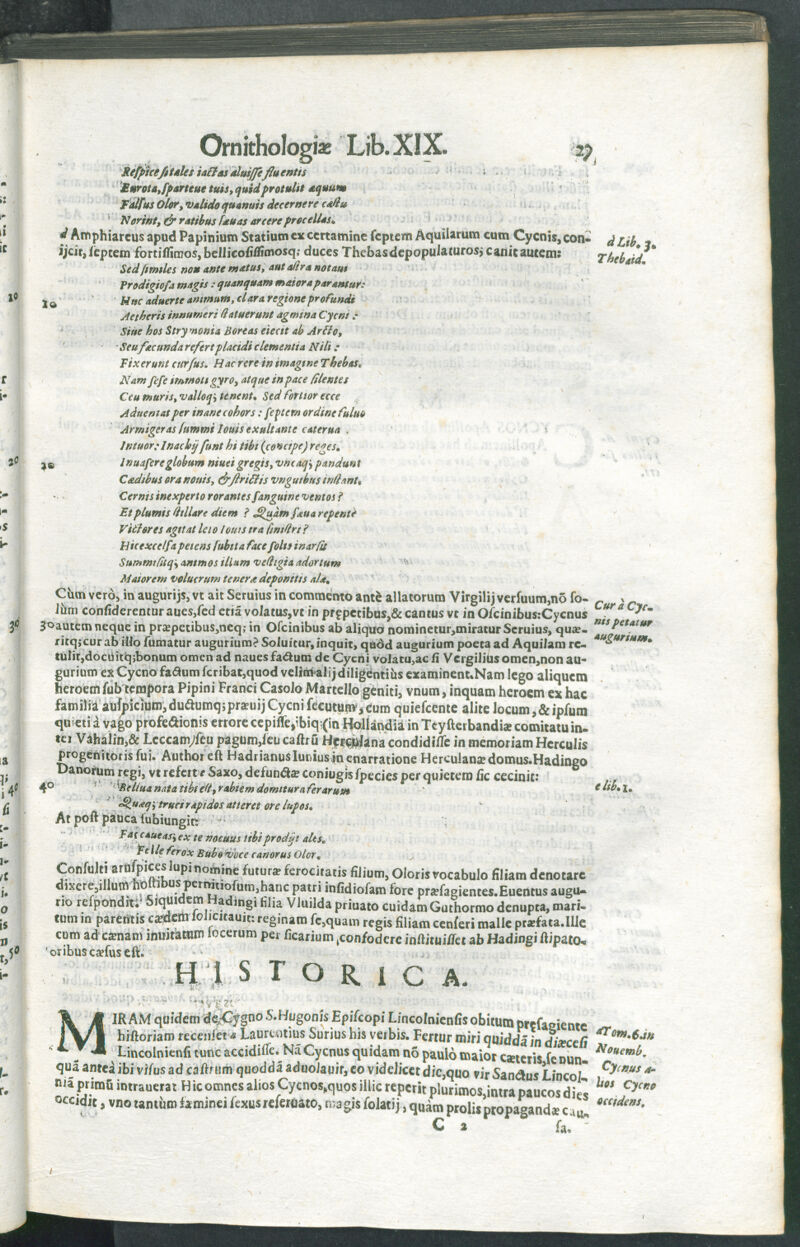 Ornithologiæ Lib. XIX. 27
Respice si tales iactas aluisse fluentis
Eurota, sparteue tuis, quid protulit æquum
Falsus Olor, valido quamuis decernere cæstu
Norint, & ratibus sæuas arcere procellas.
d Amphiareus apud Papinium Statium ex certamine septem Aquilarum cum Cycnis, con-
ijcit, septem fortissimos, bellicosissimosq; duces Thebas depopulaturos; canit autem:
d Lib. 3.
Thebaid.
Sed similes non ante metus, aut astra notaui
Prodigiosa magis: quanquam maiora parantur:
10 Huc aduerte animum, clara regione profundi
Aetheris innumeri statuerunt agmina Cycni:
Siue hos Strymonia Boreas eiecit ab Arcto,
Seu fæcunda refert placidi clementia Nili:
Fixerunt cursus. Hac rere in imagine Thebas.
Nam sese immoti gyro, atque in pace silentes
Ceu muris, valloq; tenent. Sed fortior ecce
Aduentat per inane cohors: septem ordine fuluo
Armigeras summi Iouis exultante caterua.
Intuor: Inachij sunt hi tibi (concipe) reges.
20 Inuasere globum niuei gregis, vncaq; pandunt
Cædibus ora nouis, & strictis vnguibus instant.
Cernis inexperto rorantes sanguine ventos?
Et plumis stillare diem? Quàm sæua repentè
Victores agitat leto Iouis ira sinistri?
Hic excelsa petens subita face solis inarsit
Summisitq; animos illum vestigia adortum
Maiorem volucrum teneræ deponitis alæ.
Cùm verò, in augurijs, vt ait Seruius in commento antè allatorum Virgilij versuum, nõ so-
lùm considerentur aues, sed etiã volatus, vt in prępetibus, & cantus vt in Oscinibus: Cycnus
30 autem neque in præpetibus, neq; in Oscinibus ab aliquo nominetur, miratur Seruius, quæ-
ritq; cur ab illo sumatur augurium? Soluitur, inquit, quòd augurium poeta ad Aquilam re-
Cur à Cyc-
nis petatur
augurium.
tulit, docuitq; bonum omen ad naues factum de Cycni volatu, ac si Vergilius omen, non au-
gurium ex Cycno factum scribat, quod velim alij diligentiùs examinent. Nam lego aliquem
heroem sub tempora Pipini Franci Casolo Martello geniti, vnum, inquam heroem ex hac
familia auspicium, ductumq; præuij Cycni secutum, eum quiescente alite locum, & ipsum
quieti à vago profectionis errore cepisse, ibiq (in Hollandia in Teysterbandiæ comitatu in-
ter Vahalin, & Leccam) seu pagum, seu castrũ Herculana condidisse in memoriam Herculis
progenitoris sui. Author est Hadrianus Iunius in enarratione Herculanæ domus. Hadingo
Danorum regi, vt refert e Saxo, defunctæ coniugis species per quietem sic cecinit:
e lib. 1.
40 Bellua nata tibi est, rabiem domitura ferarum
Quæq; truci rapidos atteret ore lupos.
At post pauca subiungit:
Fac caueas, ex te nocuus tibi prodijt ales.
Felle ferox Bubo voce canorus Olor.
Consulti aruspices lupi nomine futuræ ferocitatis filium, Oloris vocabulo filiam denotare
dixere, illum hostibus pernitiosum, hanc patri insidiosam fore præsagientes. Euentus augu-
rio respondit. Siquidem Hadingi filia Vluilda priuato cuidam Guthormo denupta, mari-
tum in parentis cædem solicitauit: reginam se, quam regis filiam censeri malle præfata. Ille
cum ad cænam inuitatum socerum per sicarium confodere instituisset ab Hadingi stipato-
oribus cæsus est.
HISTORICA.
MIRAM quidem de Cygno S. Hugonis Episcopi Lincolniensis obitum pręsagiente
historiam recenset a Laurentius Surius his verbis. Fertur miri quiddã in diæcesi
Lincolniensi tunc accidisse. Nã Cycnus quidam nõ paulò maior cæteris, se nun-
quã antea ibi visus ad castrum quoddã aduolauit, eo videlicet die, quo vir Sanctus Lincol-
niã primũ intrauerat Hic omnes alios Cycnos, quos illic reperit plurimos, intra paucos dies
occidit, vno tantùm fæminei sexus reseruato, magis solatij, quàm prolis propagandæ cau-
a Tom. 6. in
Nouemb.
Cycnus a-
lios Cycno
occidens.
C 2 sa.